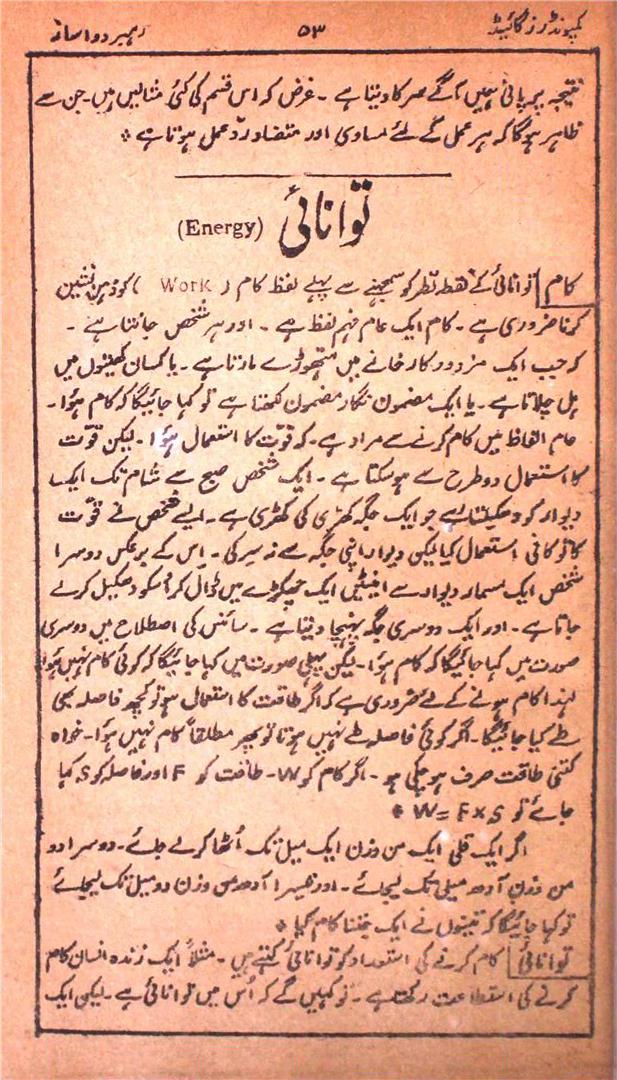 کمپونڈرز گائیڈ ۵۳ رہبر دوا ساز
نتیجہ پر پانی ہمیں آگے سرکا دیتا ہے ۔ غرض کہ اس قسم کی کئی مثالیں ہیں ۔ جن سے
ظاہر ہوگا کہ ہر عمل کے لئے مساوی اور متضاد ردّ عمل ہوتا ہے *
توانائی (Energy)
کام توانائی کے نقطہ نظر کو سمجھنے سے پہلے لفظ کام ( Work ) کو ذہن نشین
کرنا ضروری ہے ۔ کام ایک عام فہم لفظ ہے ۔ اور ہر شخص جانتا ہے ۔
کہ جب ایک مزدور کارخانے میں ہتھوڑے مارتا ہے ۔ یا کسان کھیتوں میں
ہل چلاتا ہے ۔ یا ایک مضمون نگار مضمون لکھتا ہے تو کہا جائیگا کہ کام ہؤا ۔
عام الفاظ میں کام کرنے سے مراد ہے ۔ کہ قوّت کا استعمال ہؤا ۔ لیکن قوّت
کا استعمال دو طرح سے ہو سکتا ہے ۔ ایک شخص صبح سے شام تک ایک
دیوار کو دھکیلتا ہے جو ایک جگہ کھڑی کی کھڑی ہے ۔ ایسے شخص نے قوّت
کا تو کافی استعمال کیا لیکن دیوار اپنی جگہ سے نہ سرکی ۔ اِس کے برعکس دوسرا
شخص ایک مسمار دیوار سے اینٹیں ایک چھکڑے میں ڈال کر اُسکو دھکیل کر لے
جاتا ہے ۔ اور ایک دوسری جگہ پہنچا دیتا ہے ۔ سائنس کی اصطلاح میں دوسری
صورت میں کہا جائیگا کہ کام ہؤا ۔ لیکن پہلی صورت میں کہا جائیگا کہ کوئی کام نہیں ہؤا
لہٰذا کام ہونے کے لئے ضروری ہے کہ اگر طاقت کا استعمال ہو تو کچھ فاصلہ بھی
طے کیا جائیگا ۔ اگر کوئی فاصلہ طے نہیں ہوتا تو پھر مطلقاً کام نہیں ہؤا ۔ خواہ
کتنی طاقت صرف ہو چکی ہو ۔ اگر کام کو W ۔ طاقت کو F اور فاصلہ کو S کہا
جائے تو W = F x S *
اگر ایک قلی ایک من وزن ایک میل تک اُٹھا کر لے جائے ۔ دوسرا دو
من وزن آدھ میل تک لیجائے ۔ اور تیسرا آدھ من وزن دو میل تک لیجائے
تو کہا جائیگا کہ تینوں نے ایک جتنا کام کیا *
توانائی کام کرنے کی استعداد کو توانائی کہتے ہیں ۔ مثلاً ایک زندہ انسان کام
کرنے کی استطاعت رکھتا ہے ۔ تو کہیں گے کہ اُس میں توانائی ہے ۔ لیکن ایک